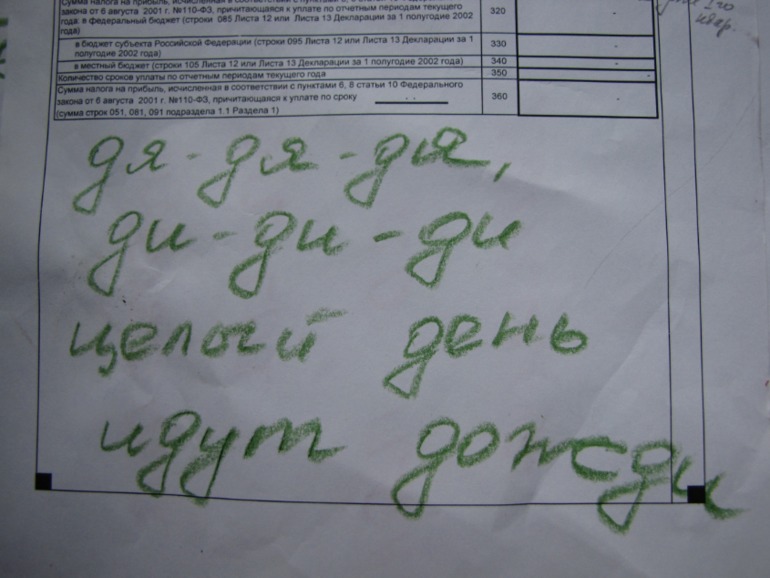 закона от 6 августа 2001 г. №110-ФЗ, причитающаяся к уплате по отчетным периодам текущего
года: в федеральный бюджет (строки 085 Листа 12 или Листа 13 Декларации за 1 полугодие 2002
года)
320
-
в бюджет субъекта Российской Федерации (строки 095 Листа 12 или Листа 13 Декларации за 1
полугодие 2002 года)
330
-
в местный бюджет (строки 105 Листа 12 или Листа 13 Декларации за 1 полугодие 2002 года)
340
-
Количество сроков уплаты по отчетным периодам текущего года
350
-
Сумма налога на прибыль, исчисленная в соответствии с пунктами 6, 8 статьи 10 Федерального
закона от 6 августа 2001 г. №110-ФЗ, причитающаяся к уплате по сроку
(сумма строк 051, 081, 091 подраздела 1.1 Раздела 1)
360
-
дя-дя-дя,
ди-ди-ди
целый день
идут дожди